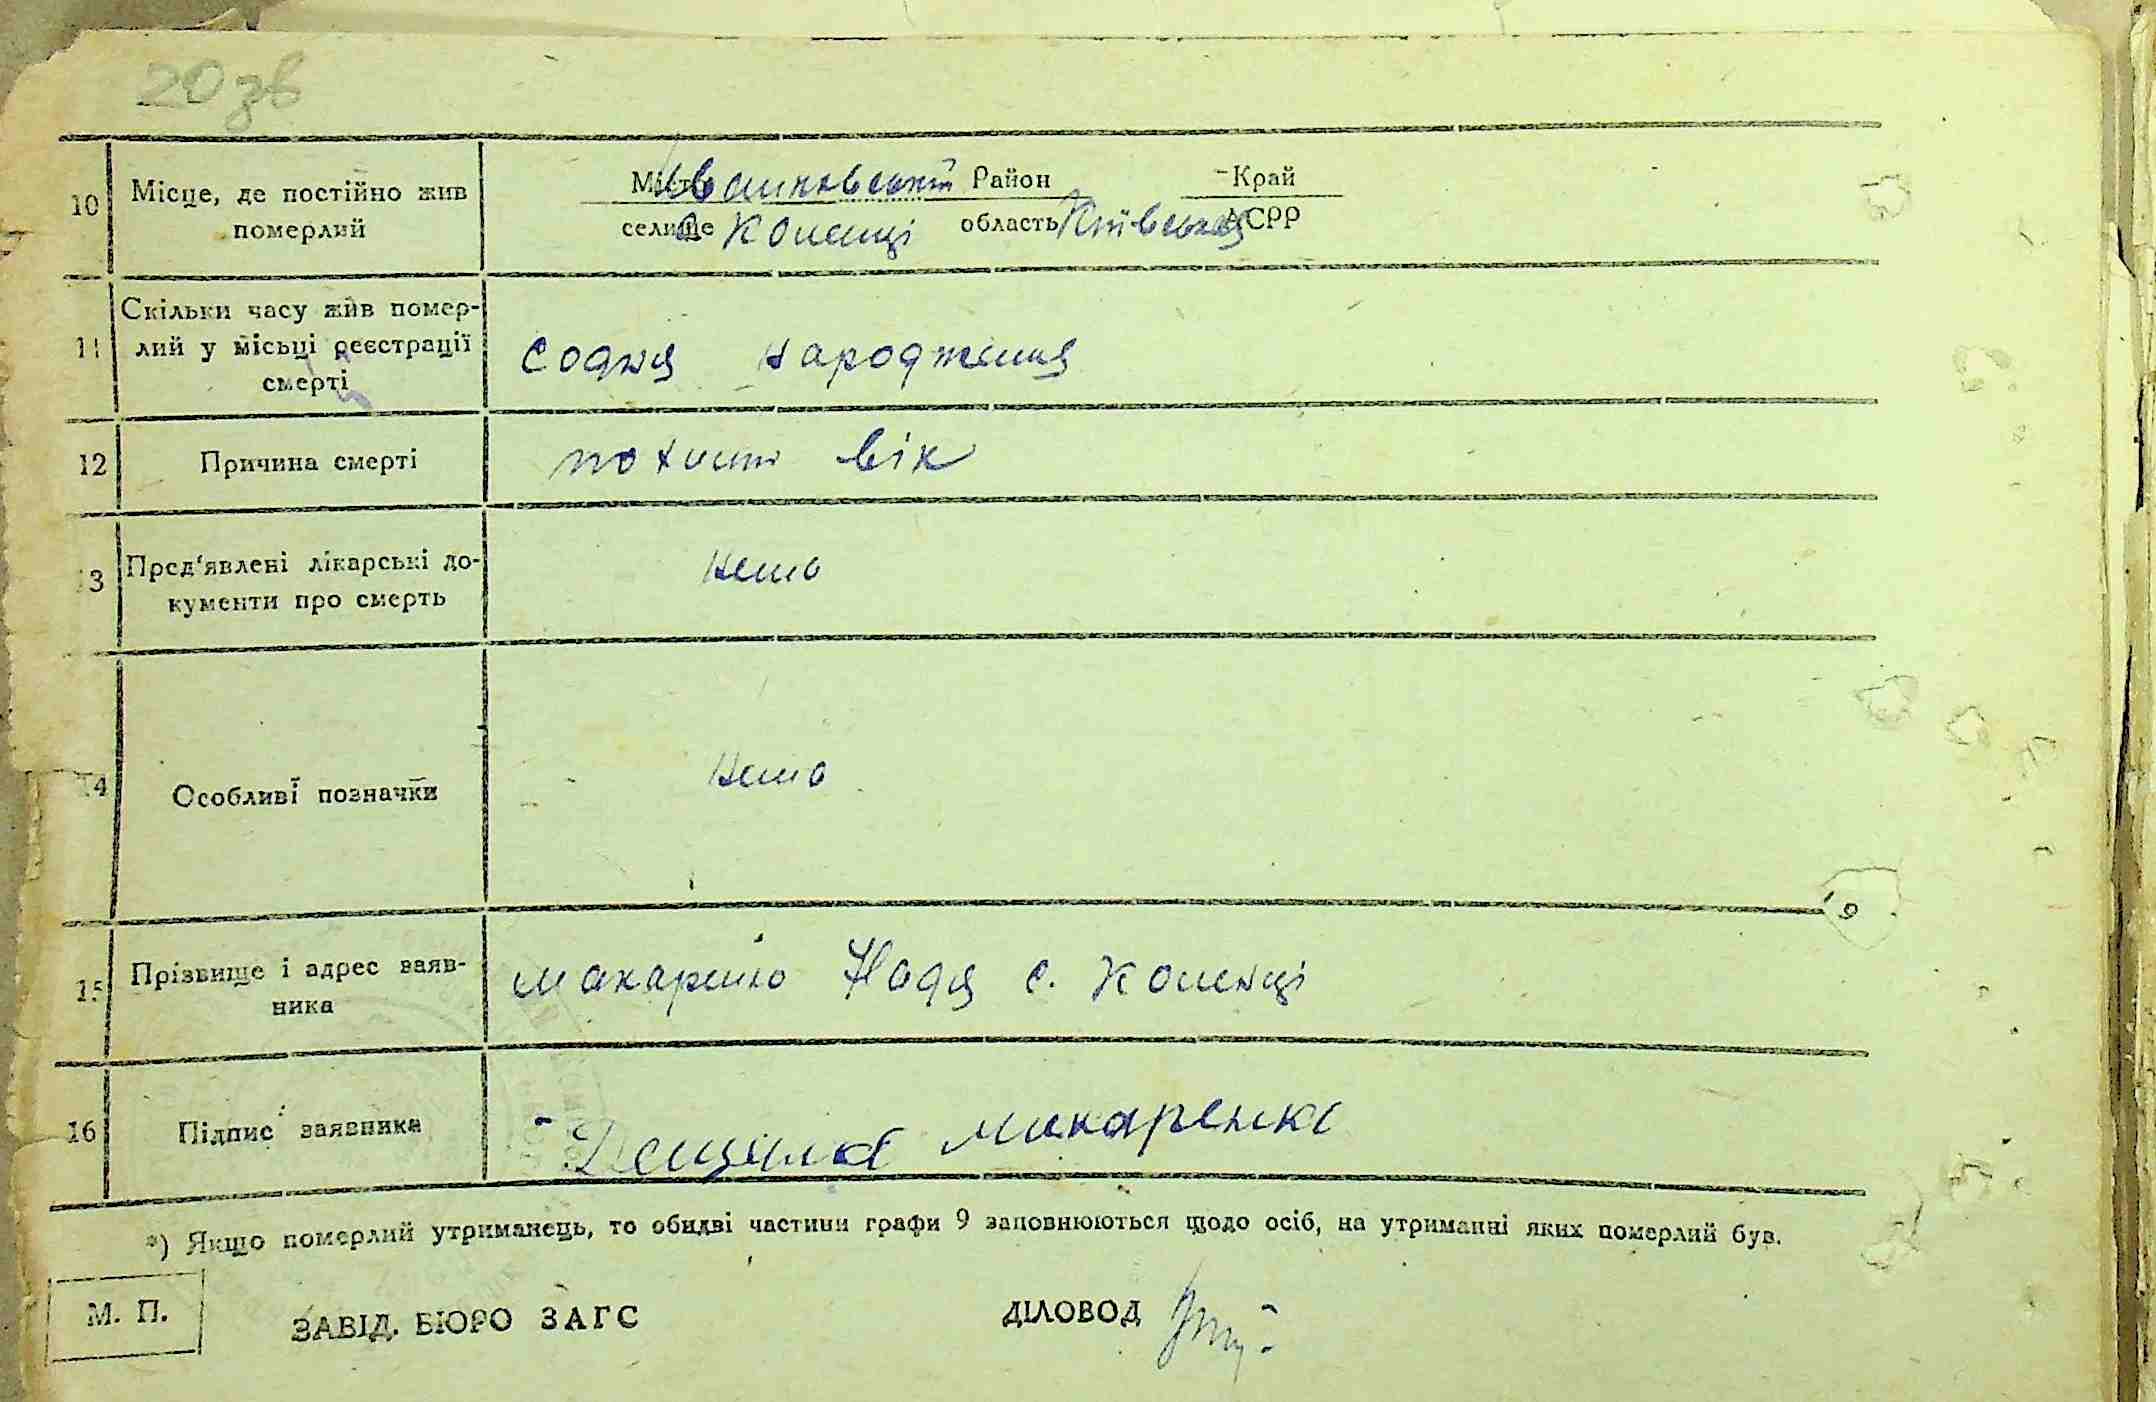 20 зв
10 Місце, де постійно жив померлий
Місто Район Край
селище область Київська АСРР
11 Скільки часу жив помер-
лий у місьці реєстрації
смерті
содня народження
12 Причина смерті
вік
13 Пред'явлені лікарські до-
кументи про смерть
нема
14 Особливі позначки
нема
15 Прізвище і адрес заяв-
ника
Макаренко Надя с.
16 Підпис заявника
Макаренко
*) Якщо померлий утриманець, то обидві частини графи 9 заповнюються щодо осіб, на утриманні яких померлий був.
М. П.
ЗАВІД. БЮРО ЗАГС
ДІЛОВОД